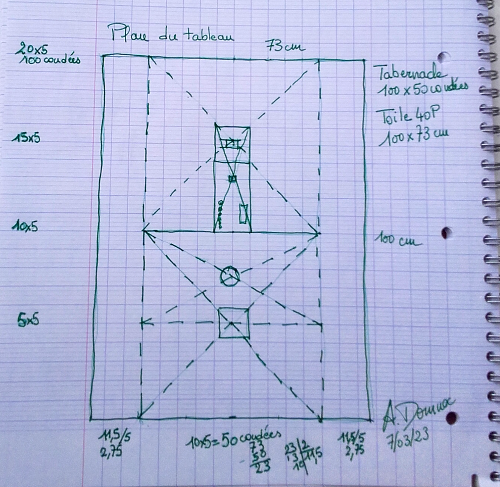 Plan du tableau
73cm
20x5
100 coudées
15x5
10x5
5x5
Tabernacle
100 x 50 coudées
Toile 40P
100 x 73 cm
100 cm
11,5/5
2,75
10x5 = 50 coudées
73
- 50
23
23/2
13
10 11,5
11,5/5
2,75
7/03/23